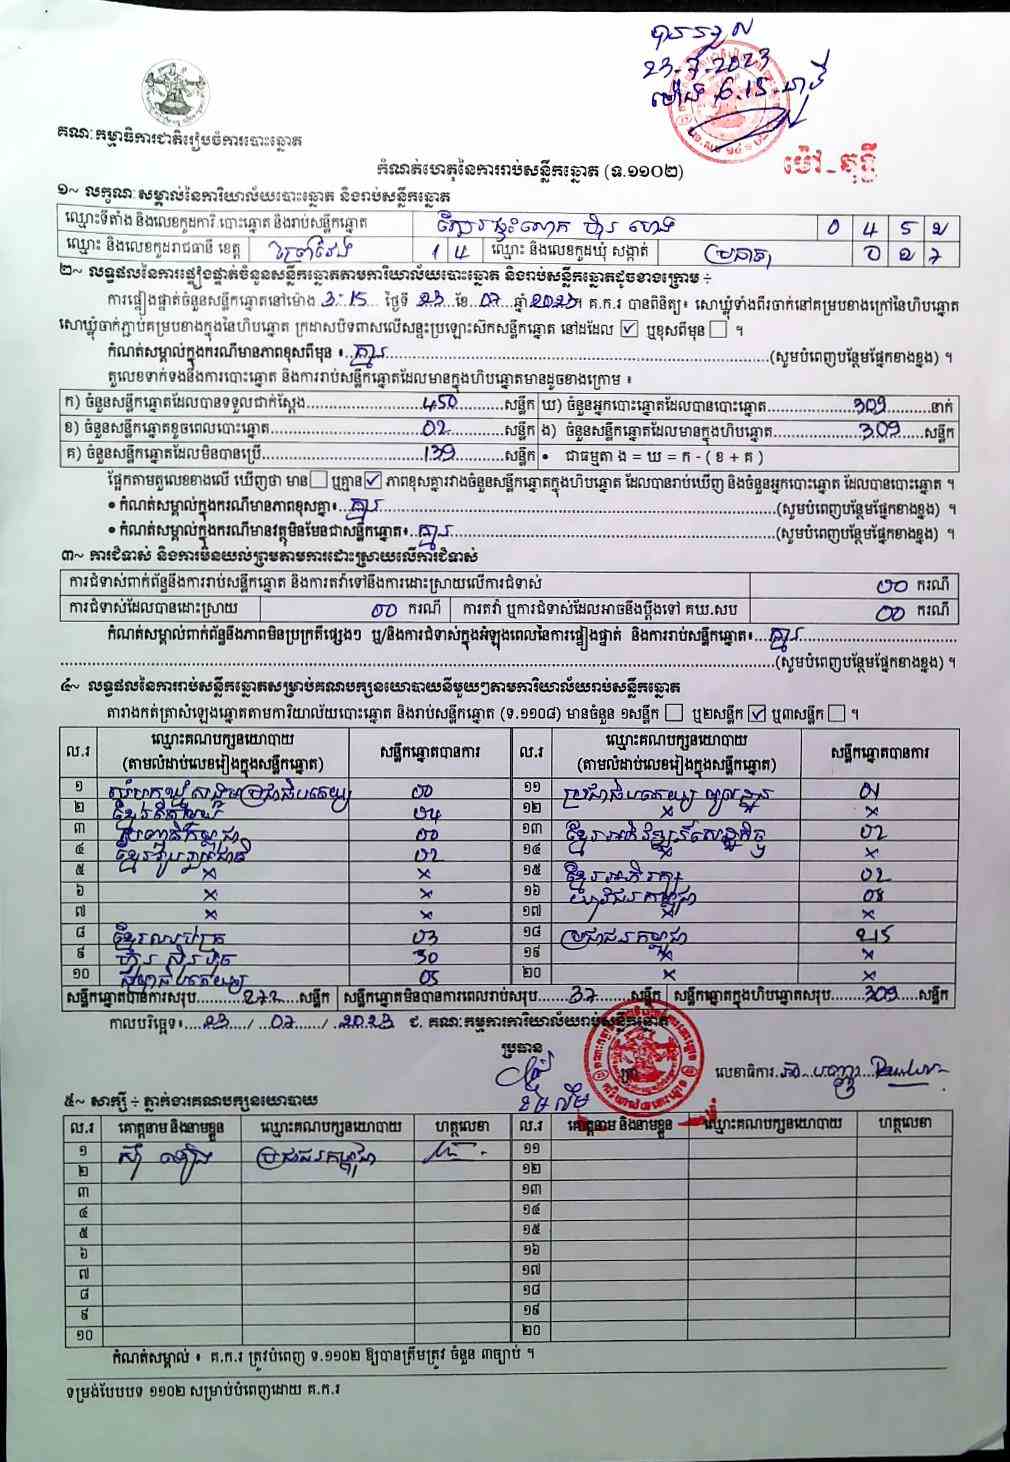 បានទទួល
23.7.2023
ម៉ោង 6.15 នាទី
គណៈកម្មាធិការជាតិរៀបចំការបោះឆ្នោត
ម៉ៅ-តុន្នី
កំណត់ហេតុនៃការរាប់សន្លឹកឆ្នោត (ទ.១១០២)
១~ លក្ខណៈសម្គាល់នៃការិយាល័យបោះឆ្នោត និងរាប់សន្លឹកឆ្នោត
ឈ្មោះទីតាំង និងលេខកូដការិ.បោះឆ្នោត និងរាប់សន្លឹកឆ្នោត
ឈ្មោះ និងលេខកូដរាជធានី ខេត្ត ព្រៃវែង 1 4 ឈ្មោះ និងលេខកូដឃុំ សង្កាត់
២~ លទ្ធផលនៃការផ្ទៀងផ្ទាត់ចំនួនសន្លឹកឆ្នោតតាមការិយាល័យបោះឆ្នោត និងរាប់សន្លឹកឆ្នោតដូចខាងក្រោម ÷
ការផ្ទៀងផ្ទាត់ចំនួនសន្លឹកឆ្នោតនៅម៉ោង 3:15 ថ្ងៃទី 23 ខែ 07 ឆ្នាំ 2023 ។ គ.ក.រ បានពិនិត្យ៖ សោឃ្លុំទាំងពីរចាក់នៅគម្របខាងក្រៅនៃហិបឆ្នោត
សោឃ្លុំចាក់ភ្ជាប់គម្របខាងក្នុងនៃហិបឆ្នោត ក្រដាសបិទពាសលើសន្ទះប្រឡោះស៊កសន្លឹកឆ្នោត នៅដដែល ☑ ឬខុសពីមុន ☐ ។
កំណត់សម្គាល់ក្នុងករណីមានភាពខុសពីមុន ៖ គ្មាន (សូមបំពេញបន្ថែមផ្នែកខាងខ្នង) ។
តួលេខទាក់ទងនឹងការបោះឆ្នោត និងការរាប់សន្លឹកឆ្នោតដែលមានក្នុងហិបឆ្នោតមានដូចខាងក្រោម ៖
ក) ចំនួនសន្លឹកឆ្នោតដែលបានទទួលជាក់ស្តែង 450 សន្លឹក ឃ) ចំនួនអ្នកបោះឆ្នោតដែលបានបោះឆ្នោត 309 នាក់
ខ) ចំនួនសន្លឹកឆ្នោតខូចពេលបោះឆ្នោត 02 សន្លឹក ង) ចំនួនសន្លឹកឆ្នោតដែលមានក្នុងហិបឆ្នោត 309 សន្លឹក
គ) ចំនួនសន្លឹកឆ្នោតដែលមិនបានប្រើ 139 សន្លឹក • ជាធម្មតា ង = ឃ = ក - ( ខ + គ )
ផ្អែកតាមតួលេខខាងលើ ឃើញថា មាន ☐ ឬគ្មាន ☑ ភាពខុសគ្នារវាងចំនួនសន្លឹកឆ្នោតក្នុងហិបឆ្នោត ដែលបានរាប់ឃើញ និងចំនួនអ្នកបោះឆ្នោត ដែលបានបោះឆ្នោត ។
• កំណត់សម្គាល់ក្នុងករណីមានភាពខុសគ្នា៖ គ្មាន (សូមបំពេញបន្ថែមផ្នែកខាងខ្នង) ។
• កំណត់សម្គាល់ក្នុងករណីមានវត្ថុមិនមែនជាសន្លឹកឆ្នោត៖ គ្មាន (សូមបំពេញបន្ថែមផ្នែកខាងខ្នង) ។
៣~ ការជំទាស់ និងការមិនយល់ព្រមតាមការដោះស្រាយលើការជំទាស់
ការជំទាស់ពាក់ព័ន្ធនឹងការរាប់សន្លឹកឆ្នោត និងការតវ៉ាទៅនឹងការដោះស្រាយលើការជំទាស់ 00 ករណី
ការជំទាស់ដែលបានដោះស្រាយ 00 ករណី ការតវ៉ា ឬការជំទាស់ដែលអាចនឹងប្តឹងទៅ គឃ.សប 00 ករណី
កំណត់សម្គាល់ពាក់ព័ន្ធនឹងភាពមិនប្រក្រតីផ្សេងៗ ឬ/និងការជំទាស់ក្នុងអំឡុងពេលនៃការផ្ទៀងផ្ទាត់ និងការរាប់សន្លឹកឆ្នោត៖ គ្មាន
(សូមបំពេញបន្ថែមផ្នែកខាងខ្នង) ។
៤~ លទ្ធផលនៃការរាប់សន្លឹកឆ្នោតសម្រាប់គណបក្សនយោបាយនីមួយៗតាមការិយាល័យរាប់សន្លឹកឆ្នោត
តារាងកត់ត្រាសំឡេងឆ្នោតតាមការិយាល័យបោះឆ្នោត និងរាប់សន្លឹកឆ្នោត (ទ.១១០៨) មានចំនួន ១សន្លឹក ☐ ឬ២សន្លឹក ☑ ឬ៣សន្លឹក ☐ ។
ល.រ ឈ្មោះគណបក្សនយោបាយ (តាមលំដាប់លេខរៀងក្នុងសន្លឹកឆ្នោត) សន្លឹកឆ្នោតបានការ ល.រ ឈ្មោះគណបក្សនយោបាយ (តាមលំដាប់លេខរៀងក្នុងសន្លឹកឆ្នោត) សន្លឹកឆ្នោតបានការ
១ សំបុកឃ្មុំសង្គមប្រជាធិបតេយ្យ 00 ១១ ប្រជាធិបតេយ្យមូលដ្ឋាន 01
២ ១២ × ×
៣ 00 ១៣ ខ្មែរអភិវឌ្ឍន៍សេដ្ឋកិច្ច 02
៤ ខ្មែររួបរួមជាតិ 02 ១៤ × ×
៥ × × ១៥ ខ្មែរអភិរក្ស 02
៦ × × ១៦ 08
៧ × × ១៧ × ×
៨ 03 ១៨ ប្រជាជនកម្ពុជា 215
៩ 30 ១៩ × ×
១០ 05 ២០ × ×
សន្លឹកឆ្នោតបានការសរុប 272 សន្លឹក សន្លឹកឆ្នោតមិនបានការពេលរាប់សរុប 37 សន្លឹក សន្លឹកឆ្នោតក្នុងហិបឆ្នោតសរុប 309 សន្លឹក
កាលបរិច្ឆេទ៖ 23 / 07 / 2023 ជ. គណៈកម្មការការិយាល័យរាប់សន្លឹកឆ្នោត
ប្រធាន
លេខាធិការ
៥~ សាក្សី ÷ ភ្នាក់ងារគណបក្សនយោបាយ
ល.រ គោត្តនាម និងនាមខ្លួន ឈ្មោះគណបក្សនយោបាយ ហត្ថលេខា ល.រ គោត្តនាម និងនាមខ្លួន ឈ្មោះគណបក្សនយោបាយ ហត្ថលេខា
១ ប្រជាជនកម្ពុជា ១១
២ ១២
៣ ១៣
៤ ១៤
៥ ១៥
៦ ១៦
៧ ១៧
៨ ១៨
៩ ១៩
១០ ២០
កំណត់សម្គាល់ ៖ គ.ក.រ ត្រូវបំពេញ ទ.១១០២ ឱ្យបានត្រឹមត្រូវ ចំនួន ៣ច្បាប់ ។
ទម្រង់បែបបទ ១១០២ សម្រាប់បំពេញដោយ គ.ក.រ